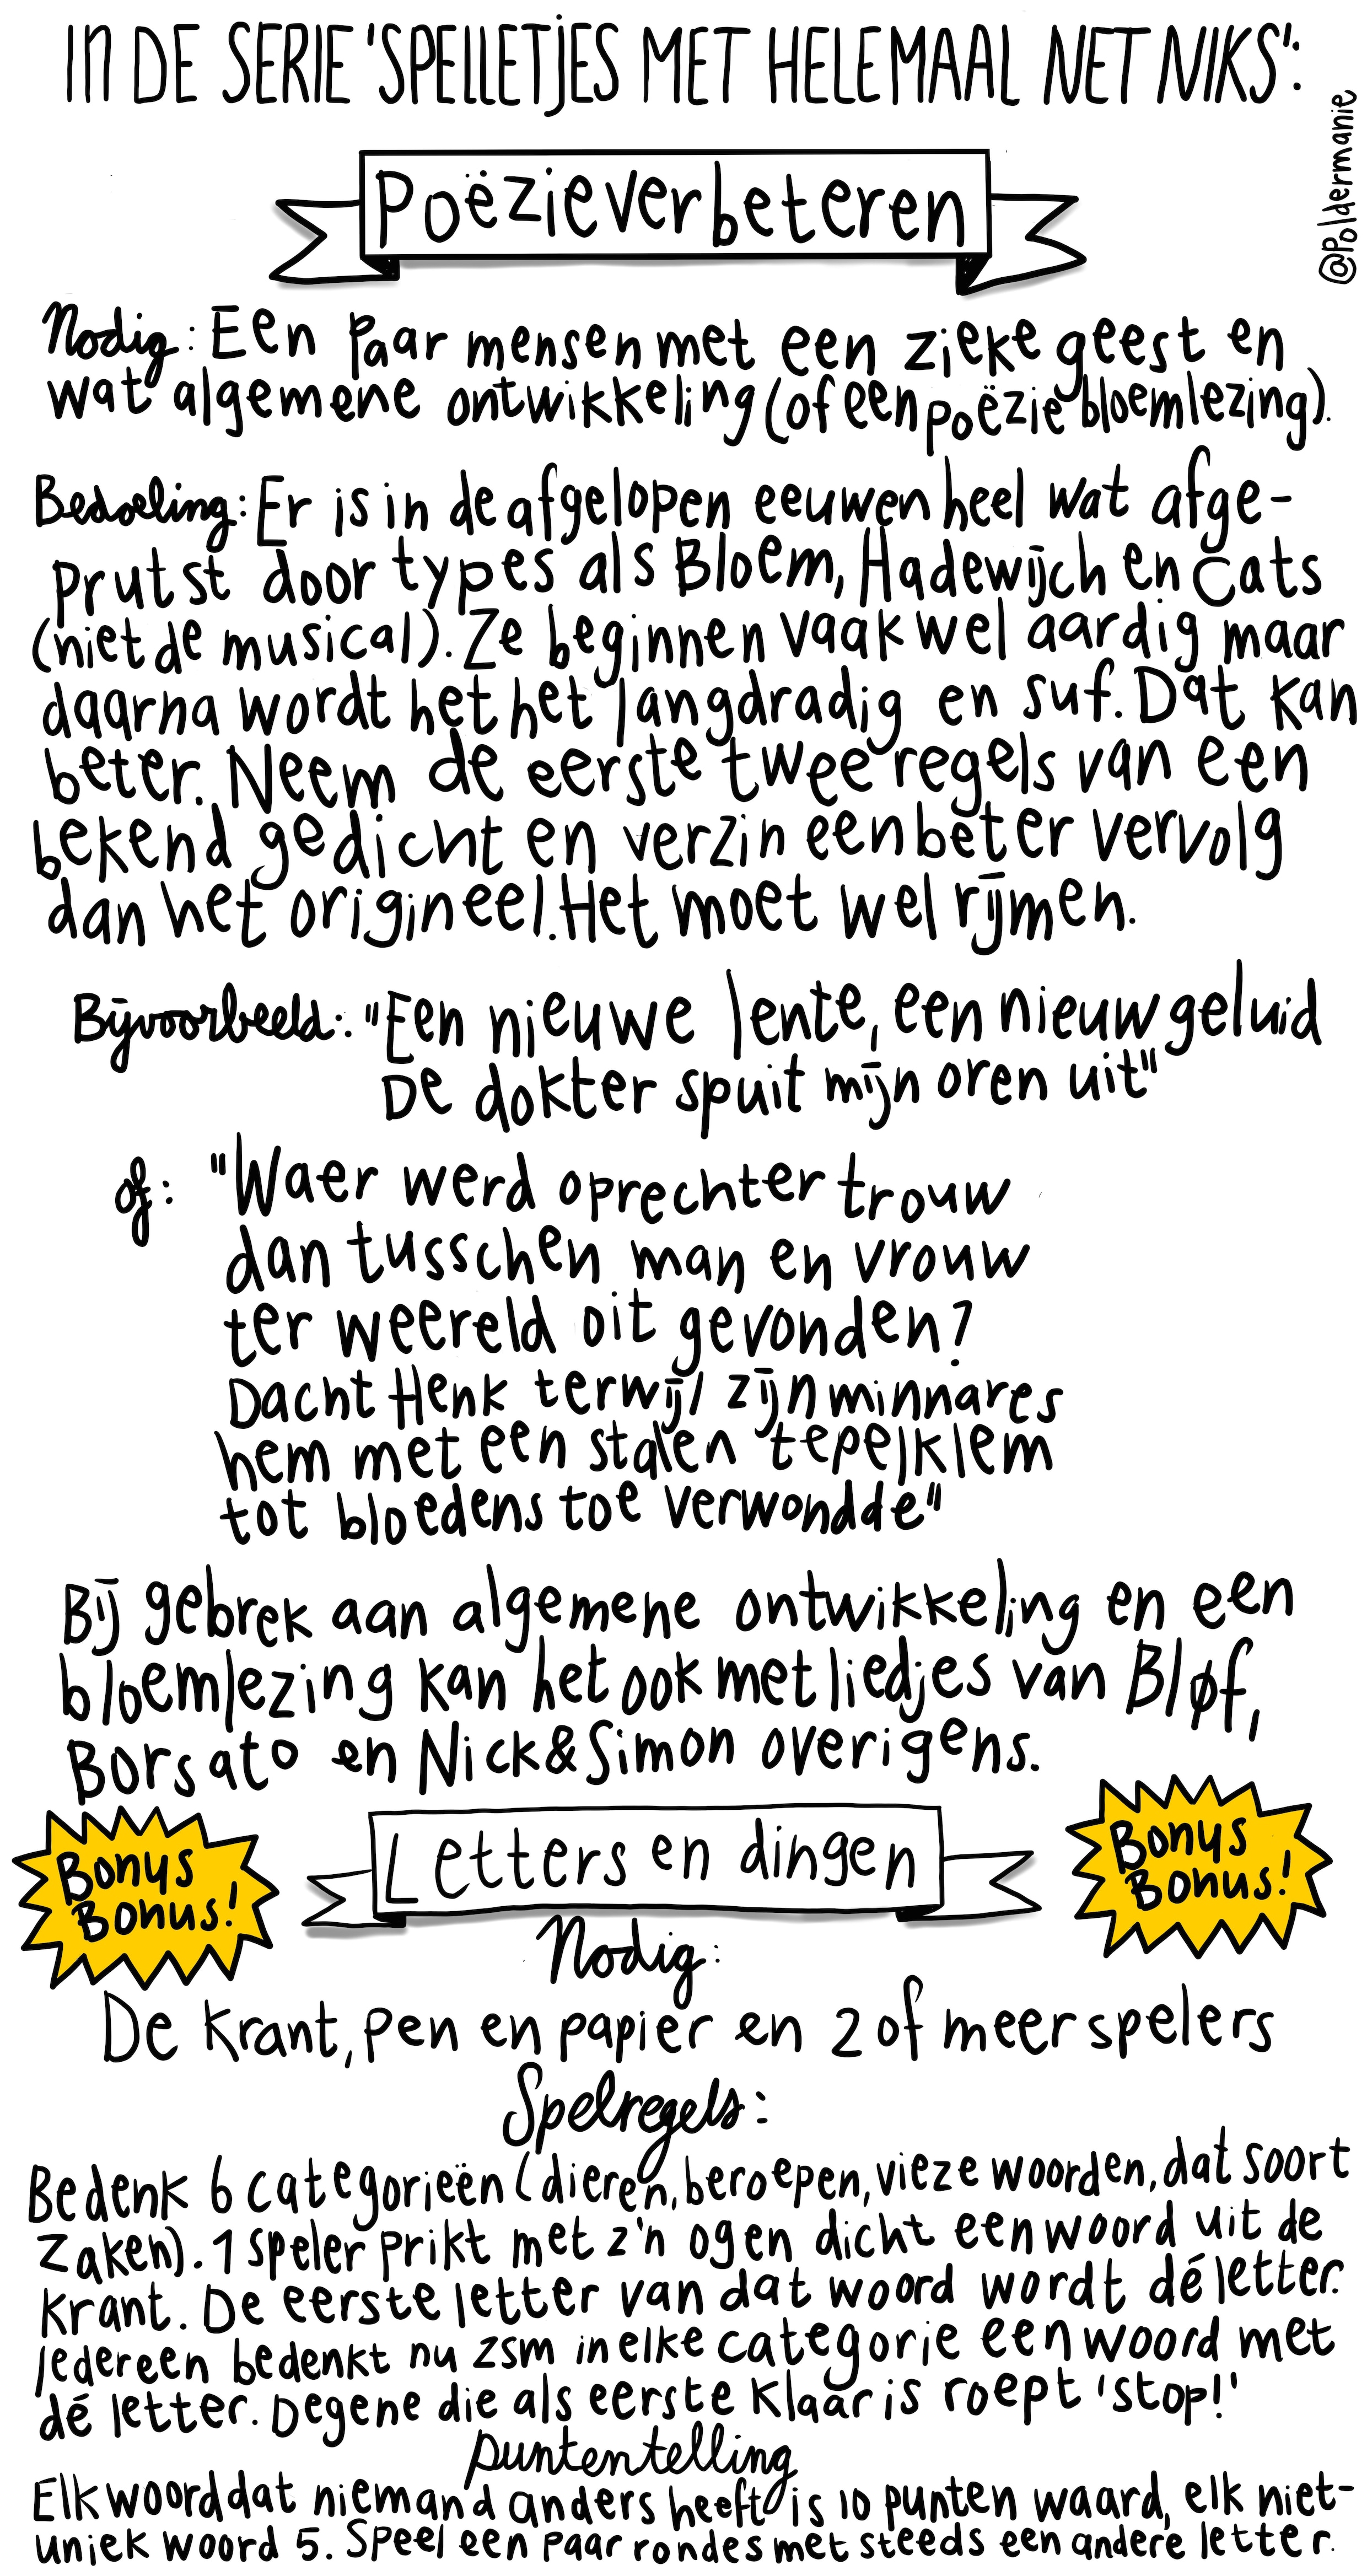 IN DE SERIE 'SPELLETJES MET HELEMAAL NET NIKS':
@Poldermanie
Poëzieverbeteren
Nodig: Een paar mensen met een zieke geest en
wat algemene ontwikkeling (of een poëziebloemlezing).
Bedoeling: Er is in de afgelopen eeuwen heel wat afge-
prutst door types als Bloem, Hadewijch en Cats
(niet de musical). Ze beginnen vaak wel aardig maar
daarna wordt het het langdradig en suf. Dat kan
beter. Neem de eerste twee regels van een
bekend gedicht en verzin een beter vervolg
dan het origineel. Het moet wel rijmen.
Bijvoorbeeld: "Een nieuwe lente, een nieuw geluid
De dokter spuit mijn oren uit"
of: "Waer werd oprechter trouw
dan tusschen man en vrouw
ter weereld oit gevonden?
Dacht Henk terwijl zijn minnares
hem met een stalen tepelklem
tot bloedens toe verwondde"
Bij gebrek aan algemene ontwikkeling en een
bloemlezing kan het ook met liedjes van Bløf,
Borsato en Nick & Simon overigens.
Bonus
Bonus!
Letters en dingen
Bonus
Bonus!
Nodig:
De krant, pen en papier en 2 of meer spelers
Spelregels:
Bedenk 6 categorieën (dieren, beroepen, vieze woorden, dat soort
zaken). 1 speler prikt met z'n ogen dicht een woord uit de
krant. De eerste letter van dat woord wordt dé letter.
Iedereen bedenkt nu zsm in elke categorie een woord met
dé letter. Degene die als eerste klaar is roept 'stop!'
puntentelling
Elk woord dat niemand anders heeft is 10 punten waard, elk niet-
uniek woord 5. Speel een paar rondes met steeds een andere letter.